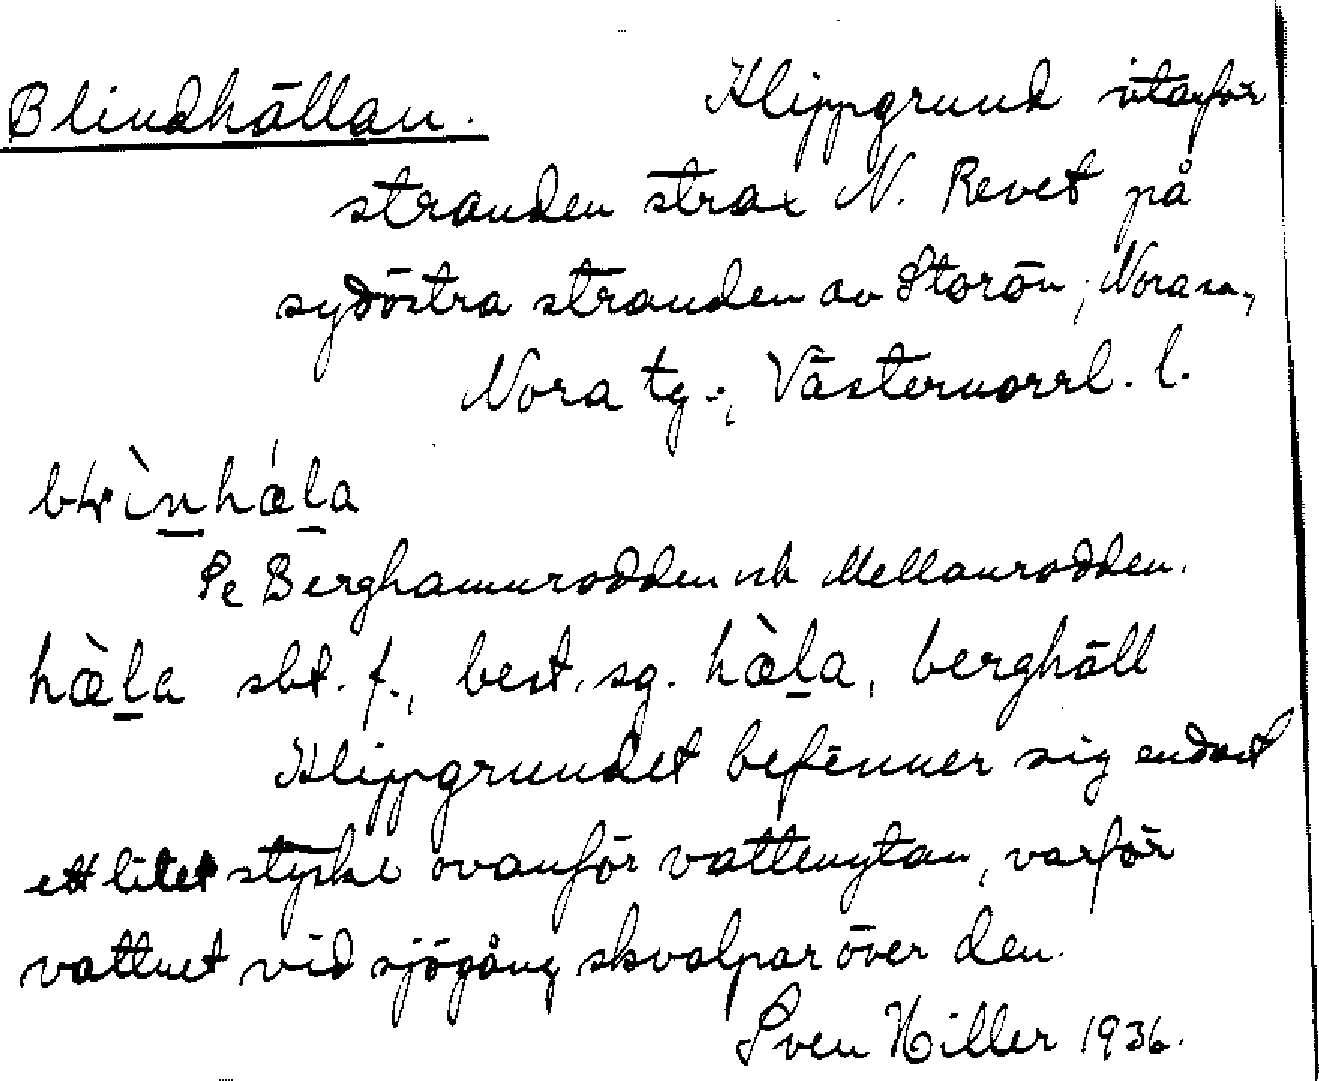 Blindhällan. Klippgrund utanför
stranden strax N. Revet på
sydöstra stranden av Storön, Nora sn,
Nora tg., Västernorrl. l.
hæ̀la
Se Berghamnsrodden och Mellanrodden.
hæ̀la sbt. f., best. sg. hæ̀la, berghäll
Klippgrundet befinner sig endast
ett litet stycke ovanför vattenytan, varför
vattnet vid sjögång skvalpar över den.
Sven Hiller 1936.